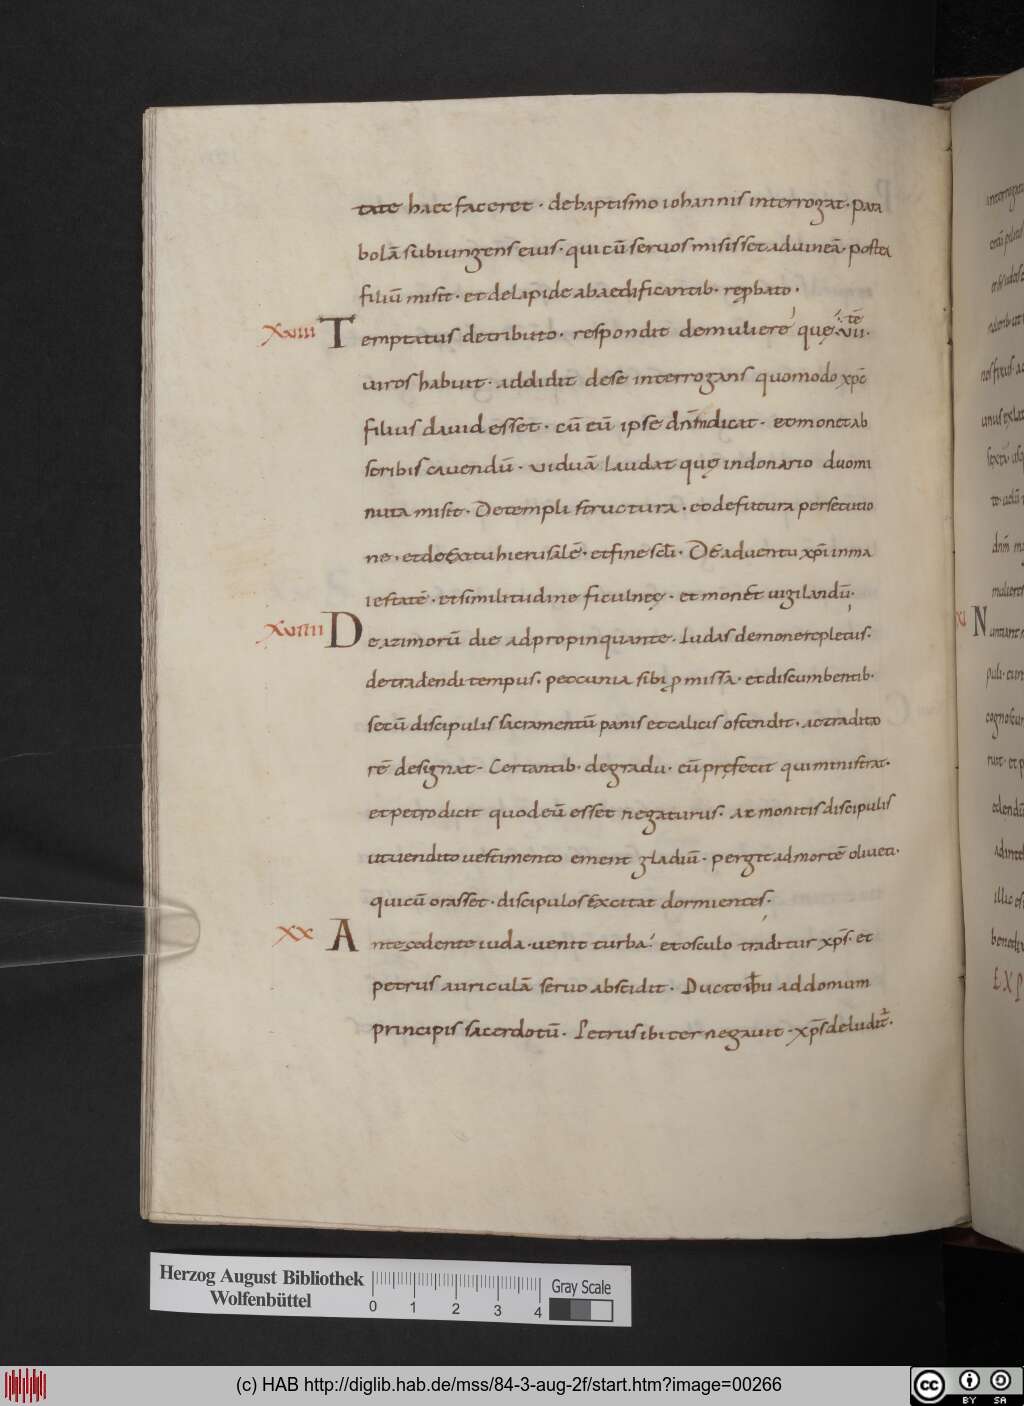 tate haec faceret · debaptismo iohannis interrogat · para
bolā subiungens eius · qui cū servos misisset ad vineā · postea
filiū misit · et delapide abaedificantib · rep̱bato ·
XVIIII Temptatus detributo · respondit demuliere que vii ·
viros habuit · addidit dese interrogans quomodo xp̄c
filius david esset · cū eū ipse dn̄m dicat · et monet ab
scribis cavendū · viduā laudat quę indonario duomi
nuta misit · Detempli structura · et defutura persecutio
ne · et deexitu hierusalē · et fine sc̄li · De adventu xp̄i in ma
iestatē · et similitudine ficulneę · et monet vigilandū ·
XVIIII De azimorū die adpropinquante · Iudas demone repletus ·
detradendi tempus · peccunia sibi p̱missa · et discumbentib ·
secū discipulis sacramentū panis et calicis ostendit · ac tradito
rē designat · Certantib · degradu · eū pręfecit qui ministrat ·
et petro dicit quod eū esset negaturus · Ac monitis discipulis
ut vendito vestimento ement gladiū · pergit ad mortē oliveti ·
qui cū orasset · discipulos excitat dormientes ·
XX Antecedente iuda · venit turba · et osculo traditur xp̄s · et
petrus auriculā servo abscidit · Ducto ih̄u ad domum
principis sacerdotū · Petrus ibi ter negavit · xp̄s deludit ·
XI N
EXP
Herzog August Bibliothek
Wolfenbüttel
0 1 2 3 4
Gray Scale
(c) HAB http://diglib.hab.de/mss/84-3-aug-2f/start.htm?image=00266
cc BY SA